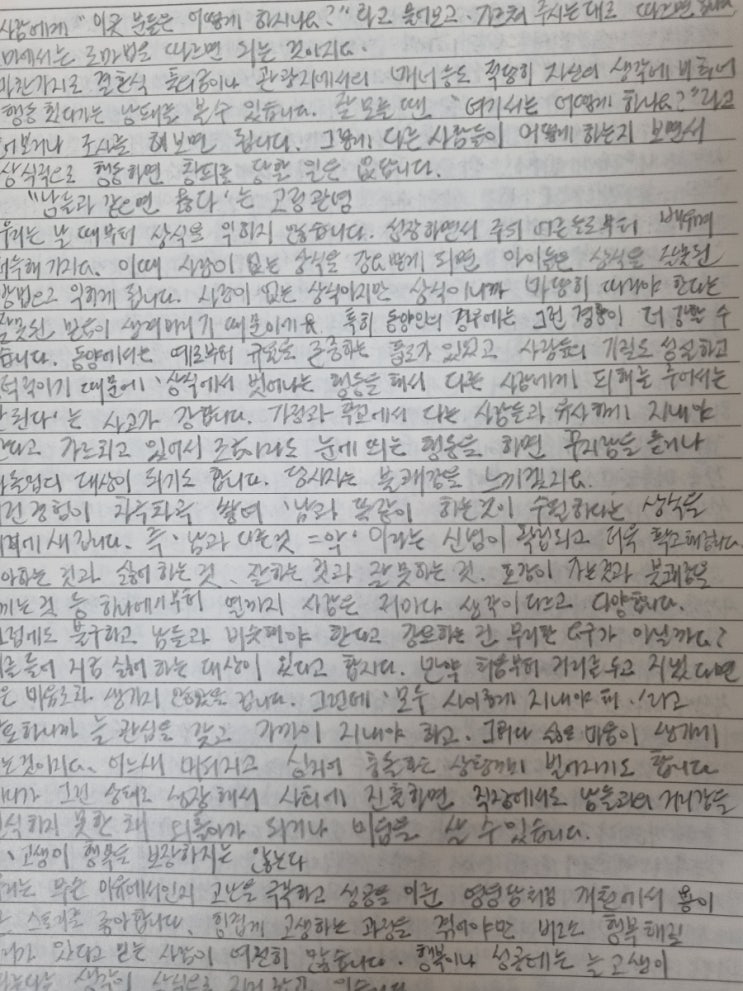 사람에게 "이곳 분들은 어떻게 하시나요?"라고 물어보고, 가르쳐 주시는 대로 따르면
마에서는 로마법을 따르면 되는 것이지요.
마찬가지로 결혼식 축의금이나 관광지에서의 매너 등도 적당히 자신의 생각에 비추어
행동했다가는 낭패를 볼 수 있습니다. 잘 모를 땐 '여기서는 어떻게 하나요?'라고
어보거나 조사를 해보면 됩니다. 그렇게 다른 사람들이 어떻게 하는지 보면서
상식적으로 행동하면 창피를 당할 일은 없답니다.
"남들과 같으면 옳다'는 고정관념
우리는 날 때부터 상식을 익히지 않습니다. 성장하면서 주위 어른들로부터 배우며
터득해 가지요. 이때 사랑이 없는 상식을 강요받게 되면 아이들은 상식을 잘못된
방법으로 익히게 됩니다. 사랑이 없는 상식이지만 상식이니까 마땅히 따라야 한다는
잘못된 믿음이 생겨버리기 때문이지요. 특히 동양인의 경우에는 그런 경향이 더 강할 수
습니다. 동양에서는 예로부터 규율을 존중하는 풍토가 있었고 사람들의 기질도 성실하고
적이기 때문에 '상식에서 벗어나는 행동을 해서 다른 사람에게 피해를 주어서는
안 된다'는 사고가 강합니다. 가정과 학교에서 다른 사람들과 유사하게 지내야
한다고 가르치고 있어서 조금이라도 눈에 띄는 행동을 하면 꾸지람을 듣거나
대상이 되기도 합니다. 당사자는 불쾌감을 느끼겠지요.
런 경험이 차곡차곡 쌓여 '남과 똑같이 하는 것이 수월하다는 상식을
에 새깁니다. 즉, '남과 다른 것 = 악' 이라는 신념이 확립되고 더욱 확고해집니다.
좋아하는 것과 싫어하는 것, 잘하는 것과 잘 못하는 것, 호감이 가는 것과 불쾌감을
끼는 것 등 하나에서부터 열까지 사람은 저마다 생각이 다르고 다양합니다.
그럼에도 불구하고 남들과 비슷해야 한다고 강요하는 건 무리한 요구가 아닐까요?
예를 들어 지금 싫어하는 대상이 있다고 합시다. 만약 처음부터 거리를 두고 지냈다면
은 마음조차 생기지 않았을 겁니다. 그런데 '모두 사이좋게 지내야 해!'라고
요하니까 늘 관심을 갖고 가까이 지내야 하고, 그러다 싫은 마음이 생기게
는 것이지요. 어느새 미워지고 심지어 충돌하는 상황까지 벌어지기도 합니다
다가 그런 상태로 성장해서 사회에 진출하면, 직장에서도 남들과의 거리감을
식하지 못한 채 외톨이가 되거나 미움을 살 수 있습니다.
'고생이 행복을 보장하지는 않는다
우리는 무슨 이유에서인지 고난을 극복하고 성공을 이룬 영웅담처럼 개천에서 용이
스토리를 좋아합니다. 힘겹게 고생하는 과정을 겪어야만 비로소 행복해질
가 있다고 믿는 사람이 여전히 많습니다. 행복이나 성공에는 늘 고생이